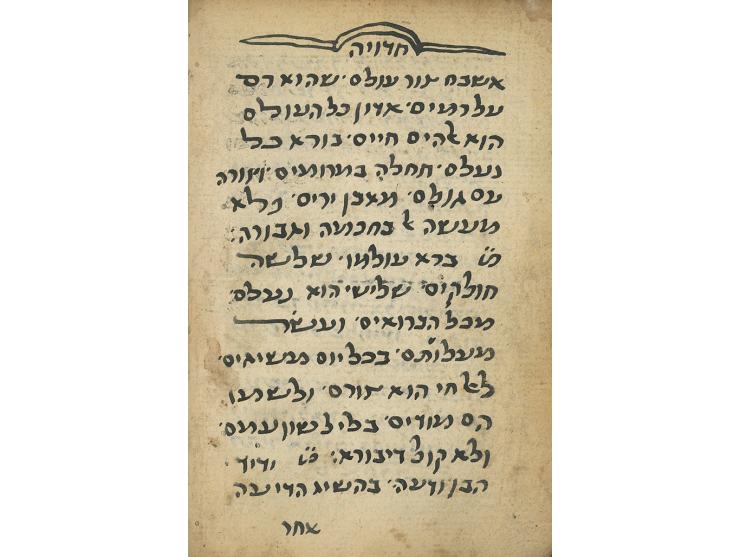 חדוויה
אשבח צור עולם׳ שהוא רם
על רמים׳ אדון כל העולם
הוא אלהים חיים׳ בורא כל
נעלם׳ תחלה במרומים׳ וצורה
עם גולם׳ מאבן יריס׳ פלא
מעשה אל בחכמה וגבורה׃
ברא עולמו׳ שלשה
חולקים׳ שלישי הוא נעלם
מכל הברואים׳ ועשר
מעלותם׳ בכל יום משיגים׳
לאל חי הוא צורם׳ ולשמו
הם מודים׳ בלי לשון עמם׳
ולא קול דיבורא׃ ודיד
הבן ודעה׳ בהשיג הדיעה
אחר